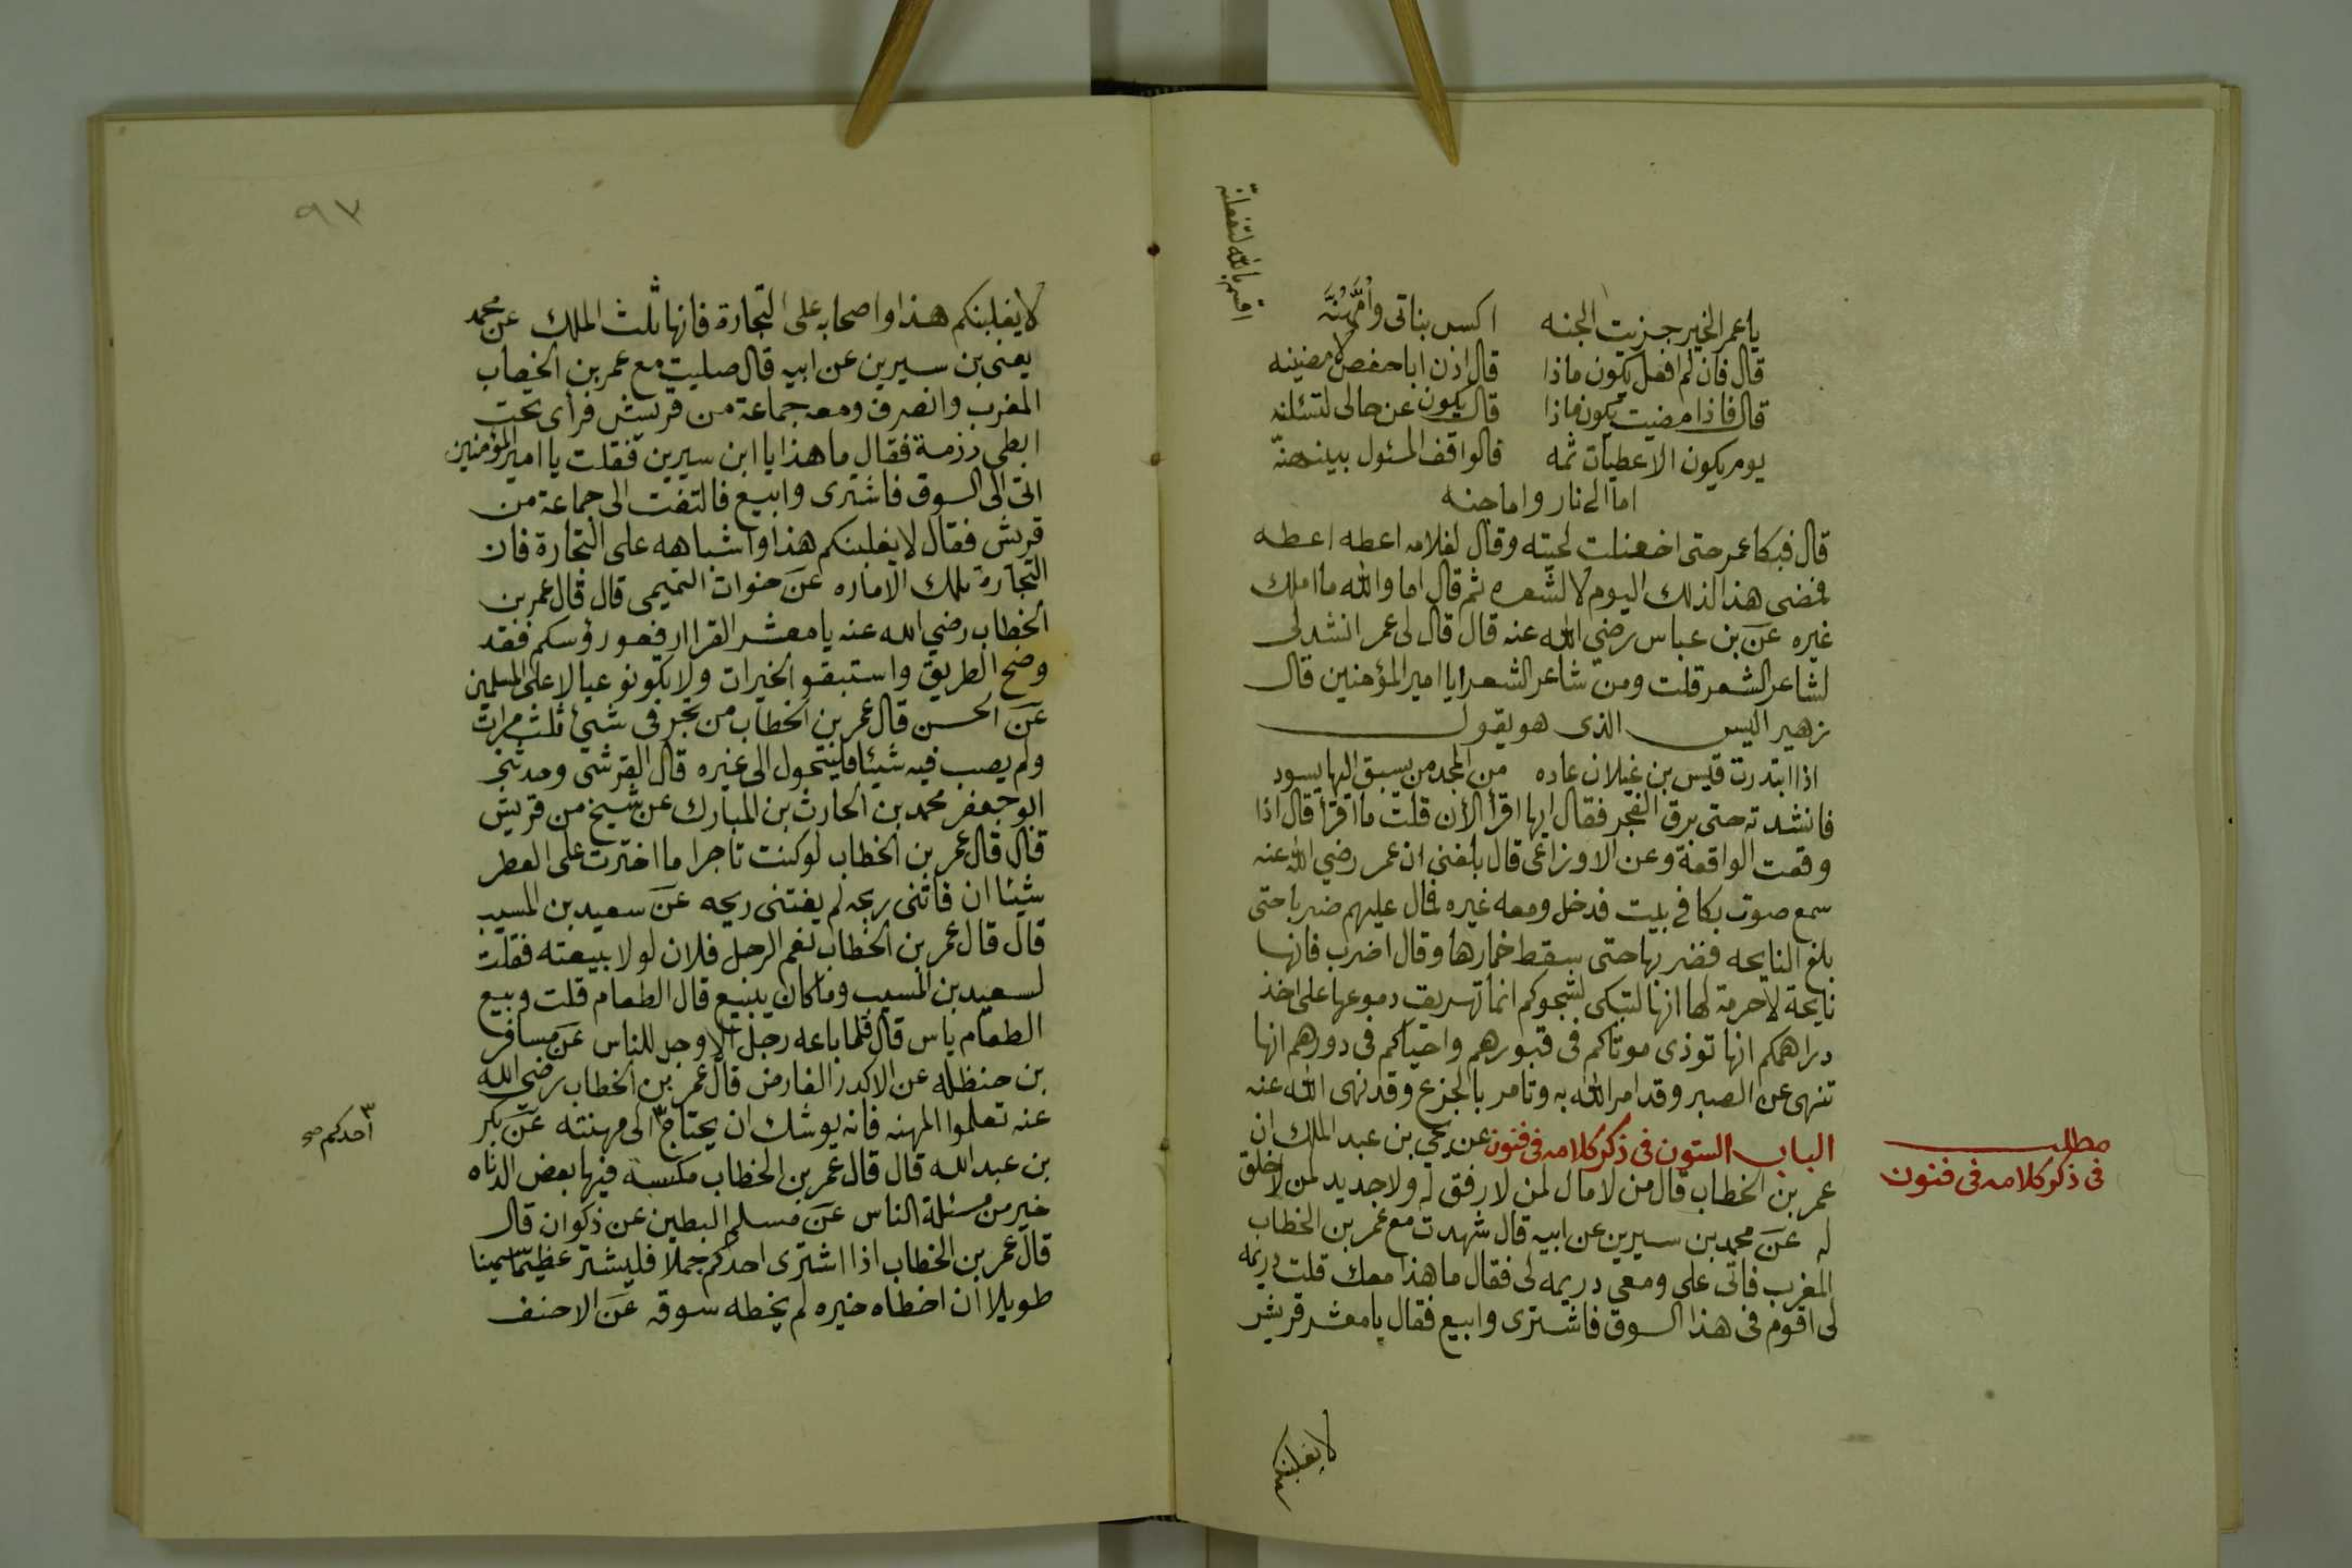 يا عمر الخير جزيت الجنه اكس بناتى وأمَّهُنَّه
اقسم بالله لتفعلنّه
قال فان لم افعل يكون ماذا قال اذن ابا حفص لامضينه
قال فاذا مضيت يكون ماذا قال يكون عن حالى لتسئلنه
يوم يكون الاعطيات ثمه قالوا قف المسئول بينهنّه
اما الى نار واما جنه
قال فبكا عمر حتى اخضلت لحيته وقال لغلامه اعطه اعطه
قمضى هذا لذلك اليوم لا لشعره ثم قال اما والله ما املك
غيره عن بن عباس رضي الله عنه قال قال لى عمر انشد لى
لشاعر الشعر قلت ومن شاعر الشعرا يا امير المؤمنين قال
زهير اليس الذى هو يقول
اذا ابتدرت قيس بن غيلان عاده من المجد من يسبق اليها يسود
فانشدته حتى برق الفجر فقال ايها اقرا الأن قلت ما اقرا قال اذا
وقعت الواقعة وعن الاوزاعى قال بلغنى ان عمر رضي الله عنه
سمع صوت بكا في بيت فدخل ومعه غيره فمال عليهم ضربا حتى
بلغ النايحه فضربها حتى سقط خمارها وقال اضرب فانها
نايحة لاحرمة لها انها لتبكى لشجوكم انما تهريق دموعها على اخذ
دراهمكم انها توذى موتاكم فى قبورهم واحياكم فى دورهم انها
تنهى عن الصبر وقد امر الله به وتامر بالجزع وقد نهى الله عنه
مطلب
فى ذكر كلامه فى فنون
الباب الستون فى ذكر كلامه فى فنون عن يحي بن عبد الملك ان
عمر بن الخطاب قال من لا مال لمن لا رفق له ولا جديد لمن لا خلق
له عن محمد بن سيرين عن ابيه قال شهدت مع عمر بن الخطاب
المغرب فاتى على ومعى دريمه لى فقال ما هذا معك قلت دريمه
لى اقوم فى هذا السوق فاشترى وابيع فقال يا معشر قريش
لا يغلبنكم
٩٣
لا يغلبنكم هذا واصحابه على التجارة فانها ثلث الملك عن محمد
يعنى بن سيرين عن ابيه قال صليت مع عمر بن الخطاب
المغرب وانصرف ومعه جماعة من قريش فرأى تحت
ابطى رزمة فقال ما هذا يا ابن سيرين فقلت يا امير المؤمنين
اتى الى السوق فاشترى وابيع فالتفت الى جماعة من
قريش فقال لا يغلبنكم هذا واشباهه على التجارة فان
التجارة ثلث الاماره عن خوات التميمى قال قال عمر بن
الخطاب رضي الله عنه يا معشر القرا ارفعو رؤسكم فقد
وضح الطريق واستبقو الخيرات ولا تكونو عيالا على المسلمين
عن الحسن قال عمر بن الخطاب من تجر فى شيئ ثلث مرات
ولم يصب فيه شيئا فليتحول الى غيره قال القرشى وحدثنى
ابو جعفر محمد بن الحارث بن المبارك عن شيخ من قريش
قال قال عمر بن الخطاب لو كنت تاجرا ما اخترت على العطر
شيئا ان فاتنى ربحه لم يفتنى ريحه عن سعيد بن المسيب
قال قال عمر بن الخطاب نعم الرجل فلان لولا بيعته فقلت
لسعيد بن المسيب وما كان يبيع قال الطعام قلت وبيع
الطعام باس قال قلما باعه رجل الا وجد للناس عن مسافر
بن حنظله عن الاكدر الفارض قال عمر بن الخطاب رضي الله
عنه تعلموا المهنه فانه يوشك ان يحتاج ٣ الى مهنته عن بكر
٣ احدكم صح
بن عبد الله قال قال عمر بن الخطاب مكسبه فيها بعض الدناه
خير من مسئلة الناس عن مسلم البطين عن ذكوان قال
قال عمر بن الخطاب اذا اشترى احدكم جملا فليشتر عظيما سمينا
طويلا ان اخطاه خيره لم يخطه سوقه عن الاحنف